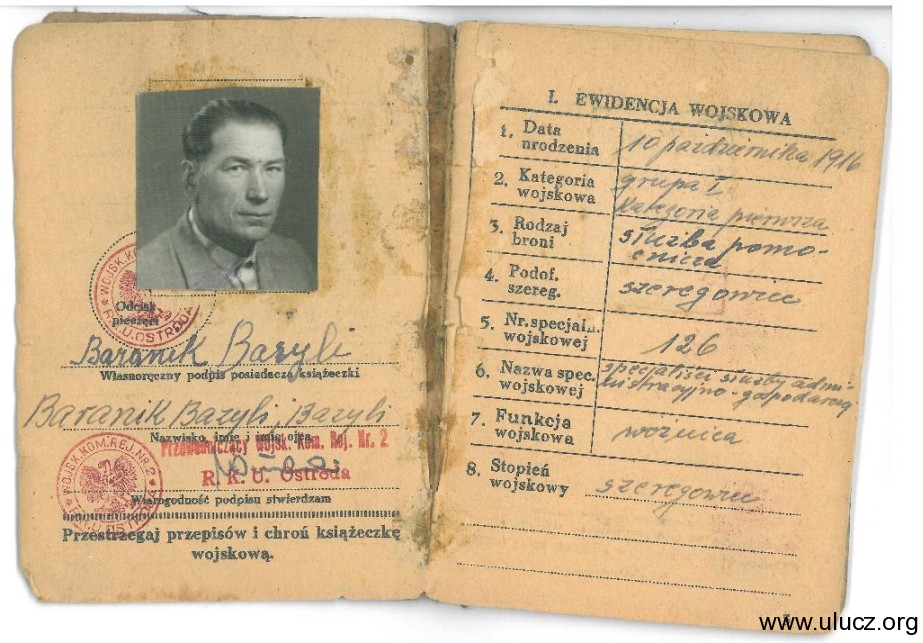 WOJSK. KOM. REJ. NR. 2
R.K.U. OSTRÓDA
Odcisk
pieczęci
Baranik Bazyli
Własnoręczny podpis posiadacza książeczki
Baranik Bazyli, Bazyli
Nazwisko, imię i imię ojca
Przewodniczący Wojsk. Kom. Rej. Nr. 2
R. K. U. Ostróda
Wiarogodność podpisu stwierdzam
WOJSK. KOM. REJ. NR. 2
R.K.U. OSTRÓDA
Przestrzegaj przepisów i chroń książeczkę
wojskową.
I. EWIDENCJA WOJSKOWA
1. Data urodzenia 10 października 1916
2. Kategoria wojskowa grupa I.
kategoria pierwsza
3. Rodzaj broni służba pomo-
cnicza
4. Podof. szereg. szeregowiec
5. Nr. specjaln. wojskowej 126
6. Nazwa spec. wojskowej specjaliści służby admi-
nistracyjno-gospodarczej
7. Funkcja wojskowa woźnica
8. Stopień wojskowy szeregowiec
www.ulucz.org